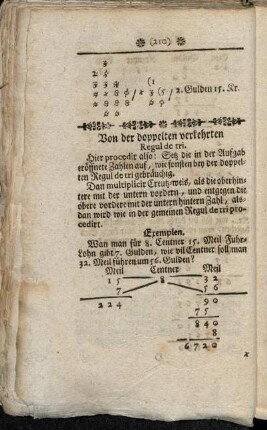 (210)
2. Gulden 15. Kr.
Von der doppelten verkehrten
Regul de tri.
Hier procedir also: Setz die in der Aufgab
eröffnete Zahlen auf, wie sonsten bey der doppel-
ten Regul de tri gebräuchig.
Dan multiplicir Creutzweis, als die oberhin-
tere mit der untern vordern, und entgegen die
obere vordere mit der untern hintern Zahl, als-
dan wird wie in der gemeinen Regul de tri pro-
cedirt.
Exemplen.
Wan man für 8. Centner 15. Meil Fuhr-
Lohn gibt 7. Gulden, wie vil Centner soll man
32. Meil führen um 56. Gulden?
Meil Centner Meil
15 8 32
7 56
224 90
75
840
8
6720